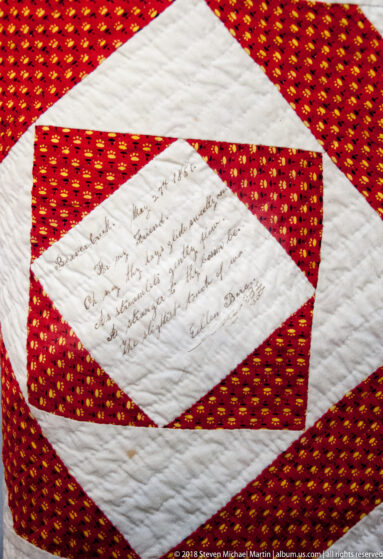 May 27th 1861.
To my Friend.
Oh may thy days glide sweetly on
As streamlets gently flow.
A stranger to thy bosom be
The slightest touch of wo.
© 2018 Steven Michael Martin | album.us.com | all rights reserved